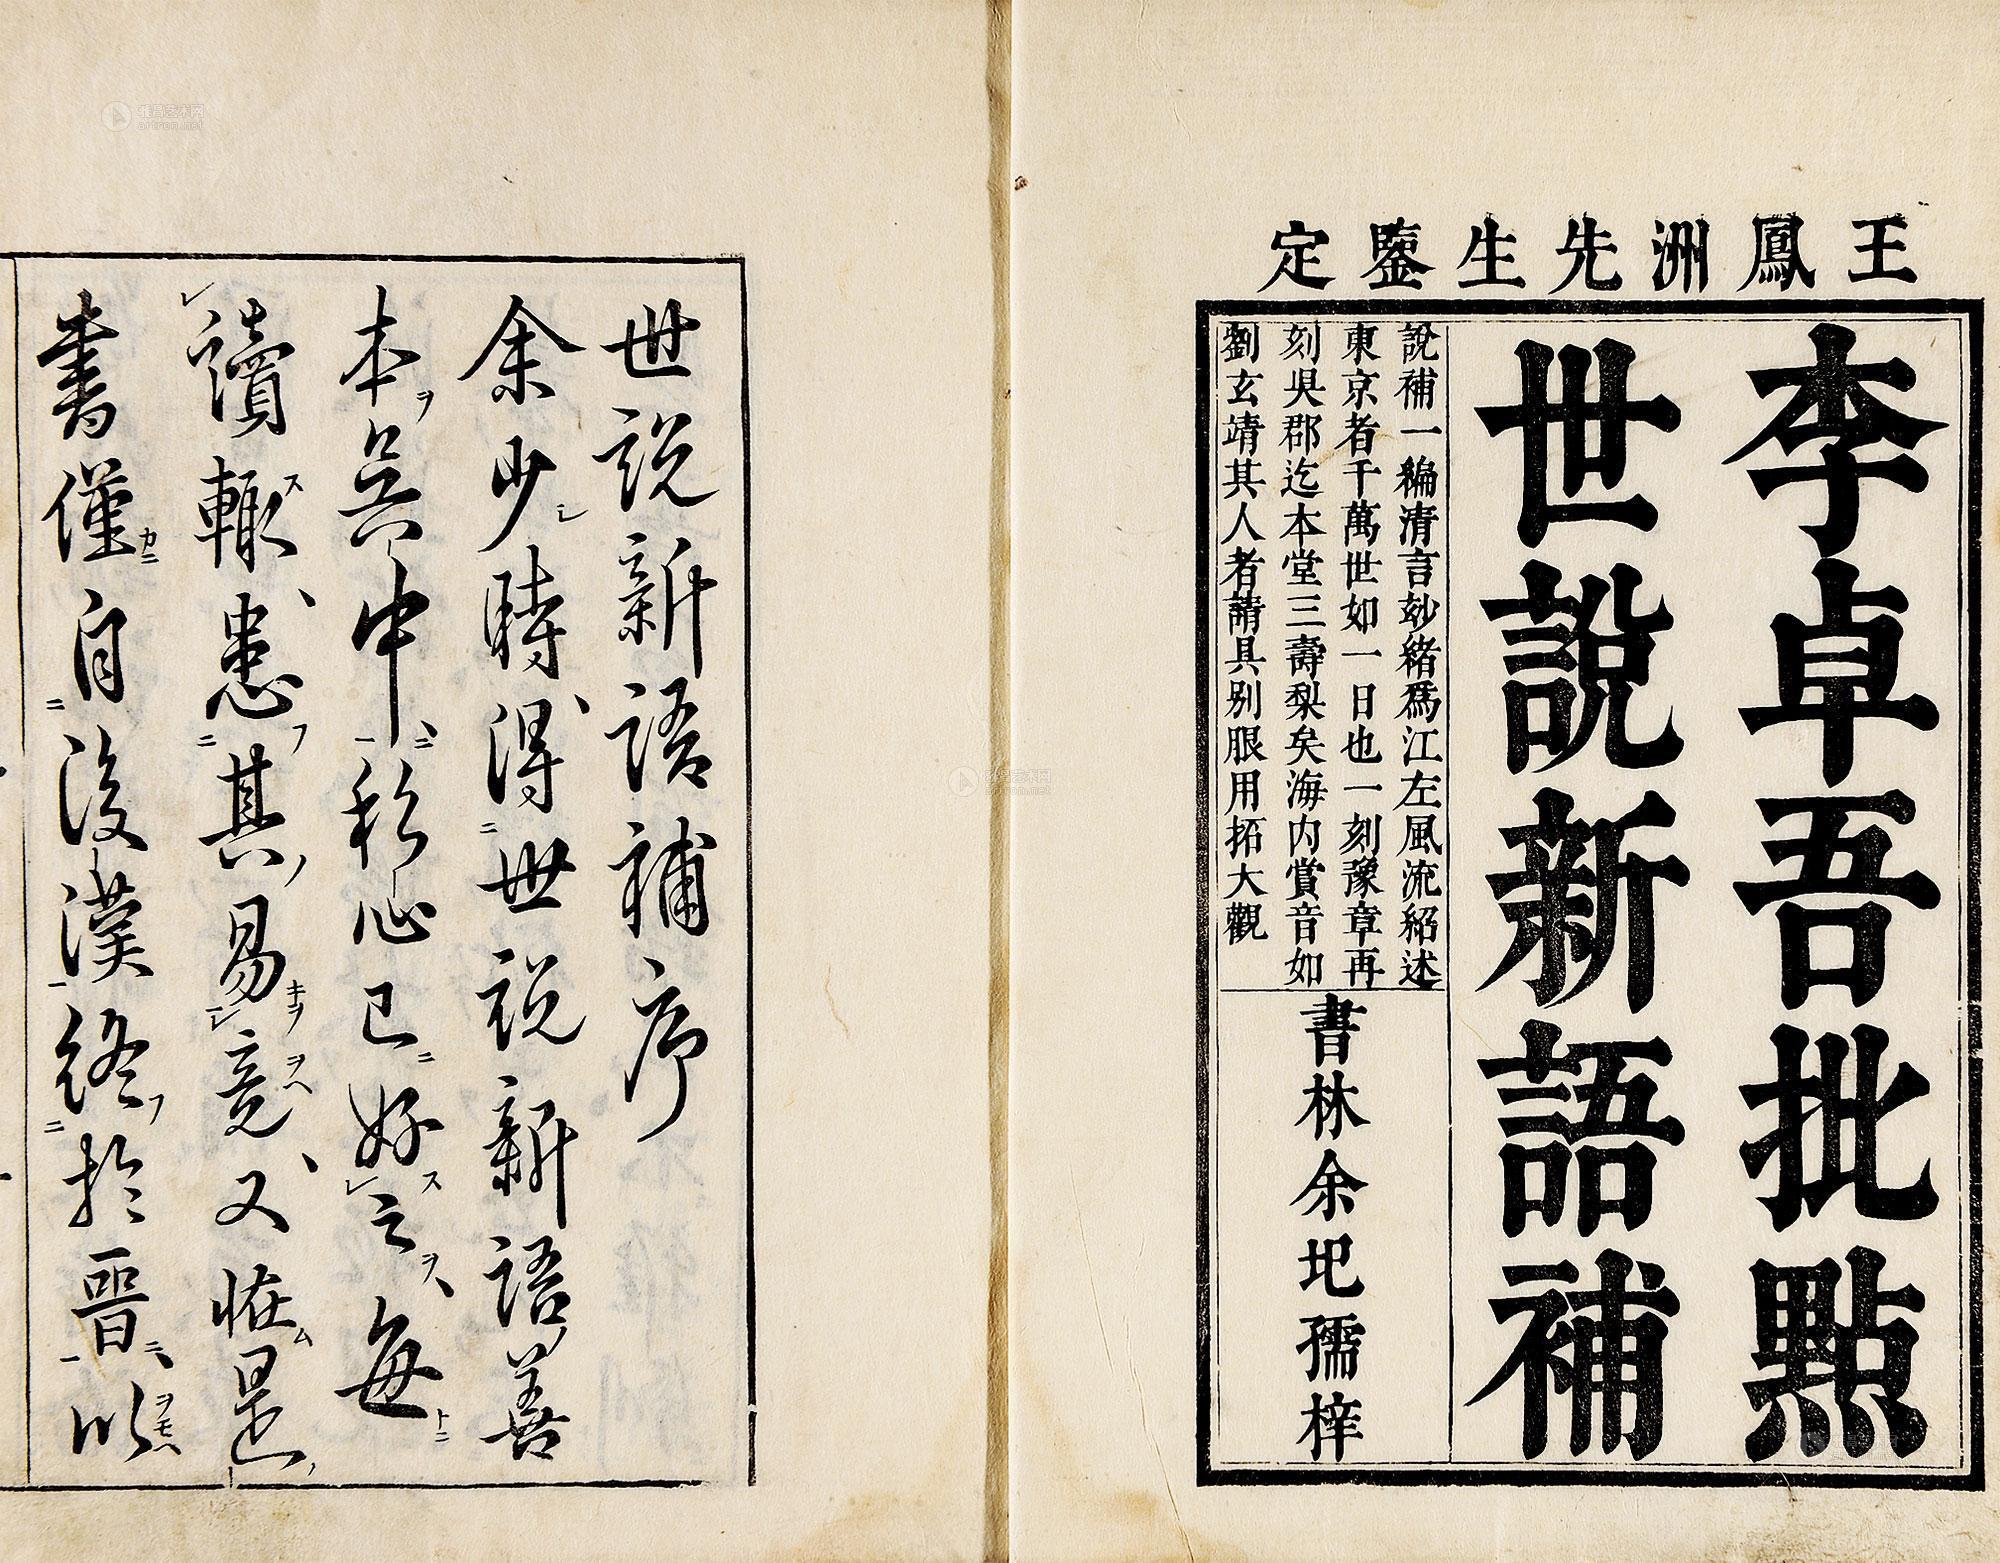 王鳳洲先生鑒定
李卓吾批點
世說新語補
說補一編清言玅緒爲江左風流紹述
東京者千萬世如一日也一刻豫章再
刻吳郡迄本堂三壽梨矣海内賞音如
劉玄靖其人者請具别眼用拓大觀
書林余圯孺梓
世説新語補序
余少時得世説新語善
本吳中私心已好之每
讀輙患其易竟又怪是
書僅自後漢終於晋以
雅昌艺术网
artron.net
雅昌艺术网
artron.net